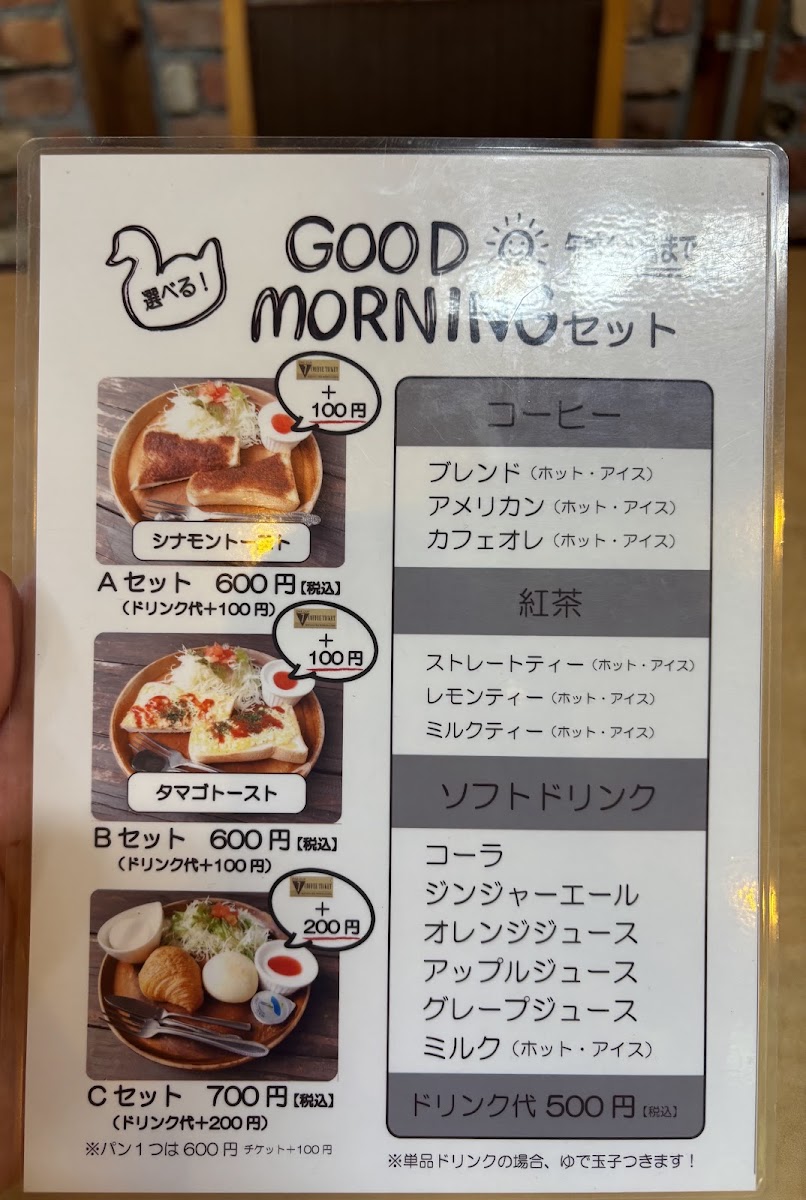 選べる！
GOOD
MORNING セット
まで
COFFEE TICKET
＋
100円
シナモントースト
Aセット 600円【税込】
（ドリンク代＋100円）
COFFEE TICKET
＋
100円
タマゴトースト
Bセット 600円【税込】
（ドリンク代＋100円）
COFFEE TICKET
＋
200円
Cセット 700円【税込】
（ドリンク代＋200円）
※パン１つは600円 チケット＋100円
コーヒー
ブレンド（ホット・アイス）
アメリカン（ホット・アイス）
カフェオレ（ホット・アイス）
紅茶
ストレートティー（ホット・アイス）
レモンティー（ホット・アイス）
ミルクティー（ホット・アイス）
ソフトドリンク
コーラ
ジンジャーエール
オレンジジュース
アップルジュース
グレープジュース
ミルク（ホット・アイス）
ドリンク代 500円【税込】
※単品ドリンクの場合、ゆで玉子つきます！